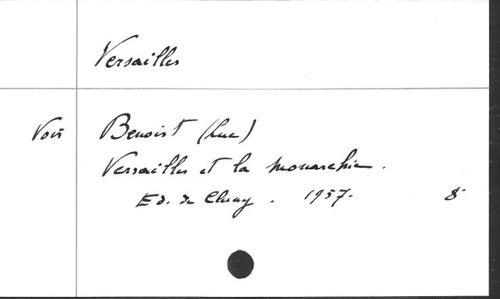 Versailles
Voir Benoist (Luc)
Versailles et la monarchie.
Ed. de Cluny. 1957. 8°